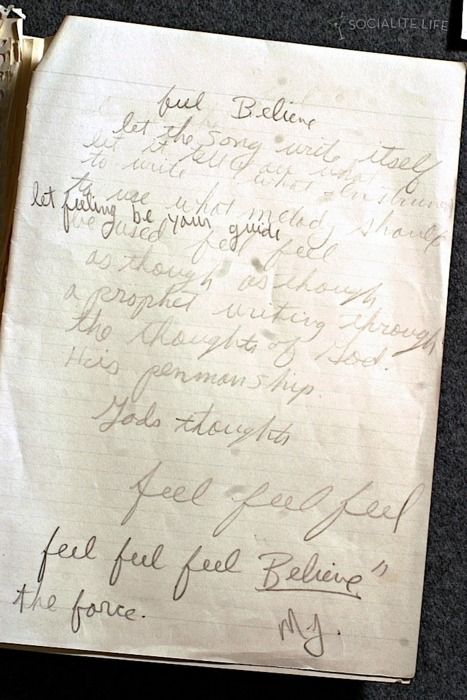 SOCIALITE LIFE
feel Believe
let the song write itself
let it tell you what
to write what instruments
to use what melody should
let feeling be your guide
be used feel feel
as though as though
a prophet writing through
the thoughts of God.
His penmanship.
Gods thoughts
feel feel feel
feel feel feel Believe"
the force.
MJ.